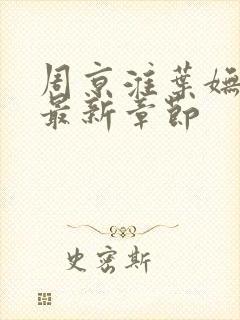 周京淮葉嫵
最新章節
史密斯